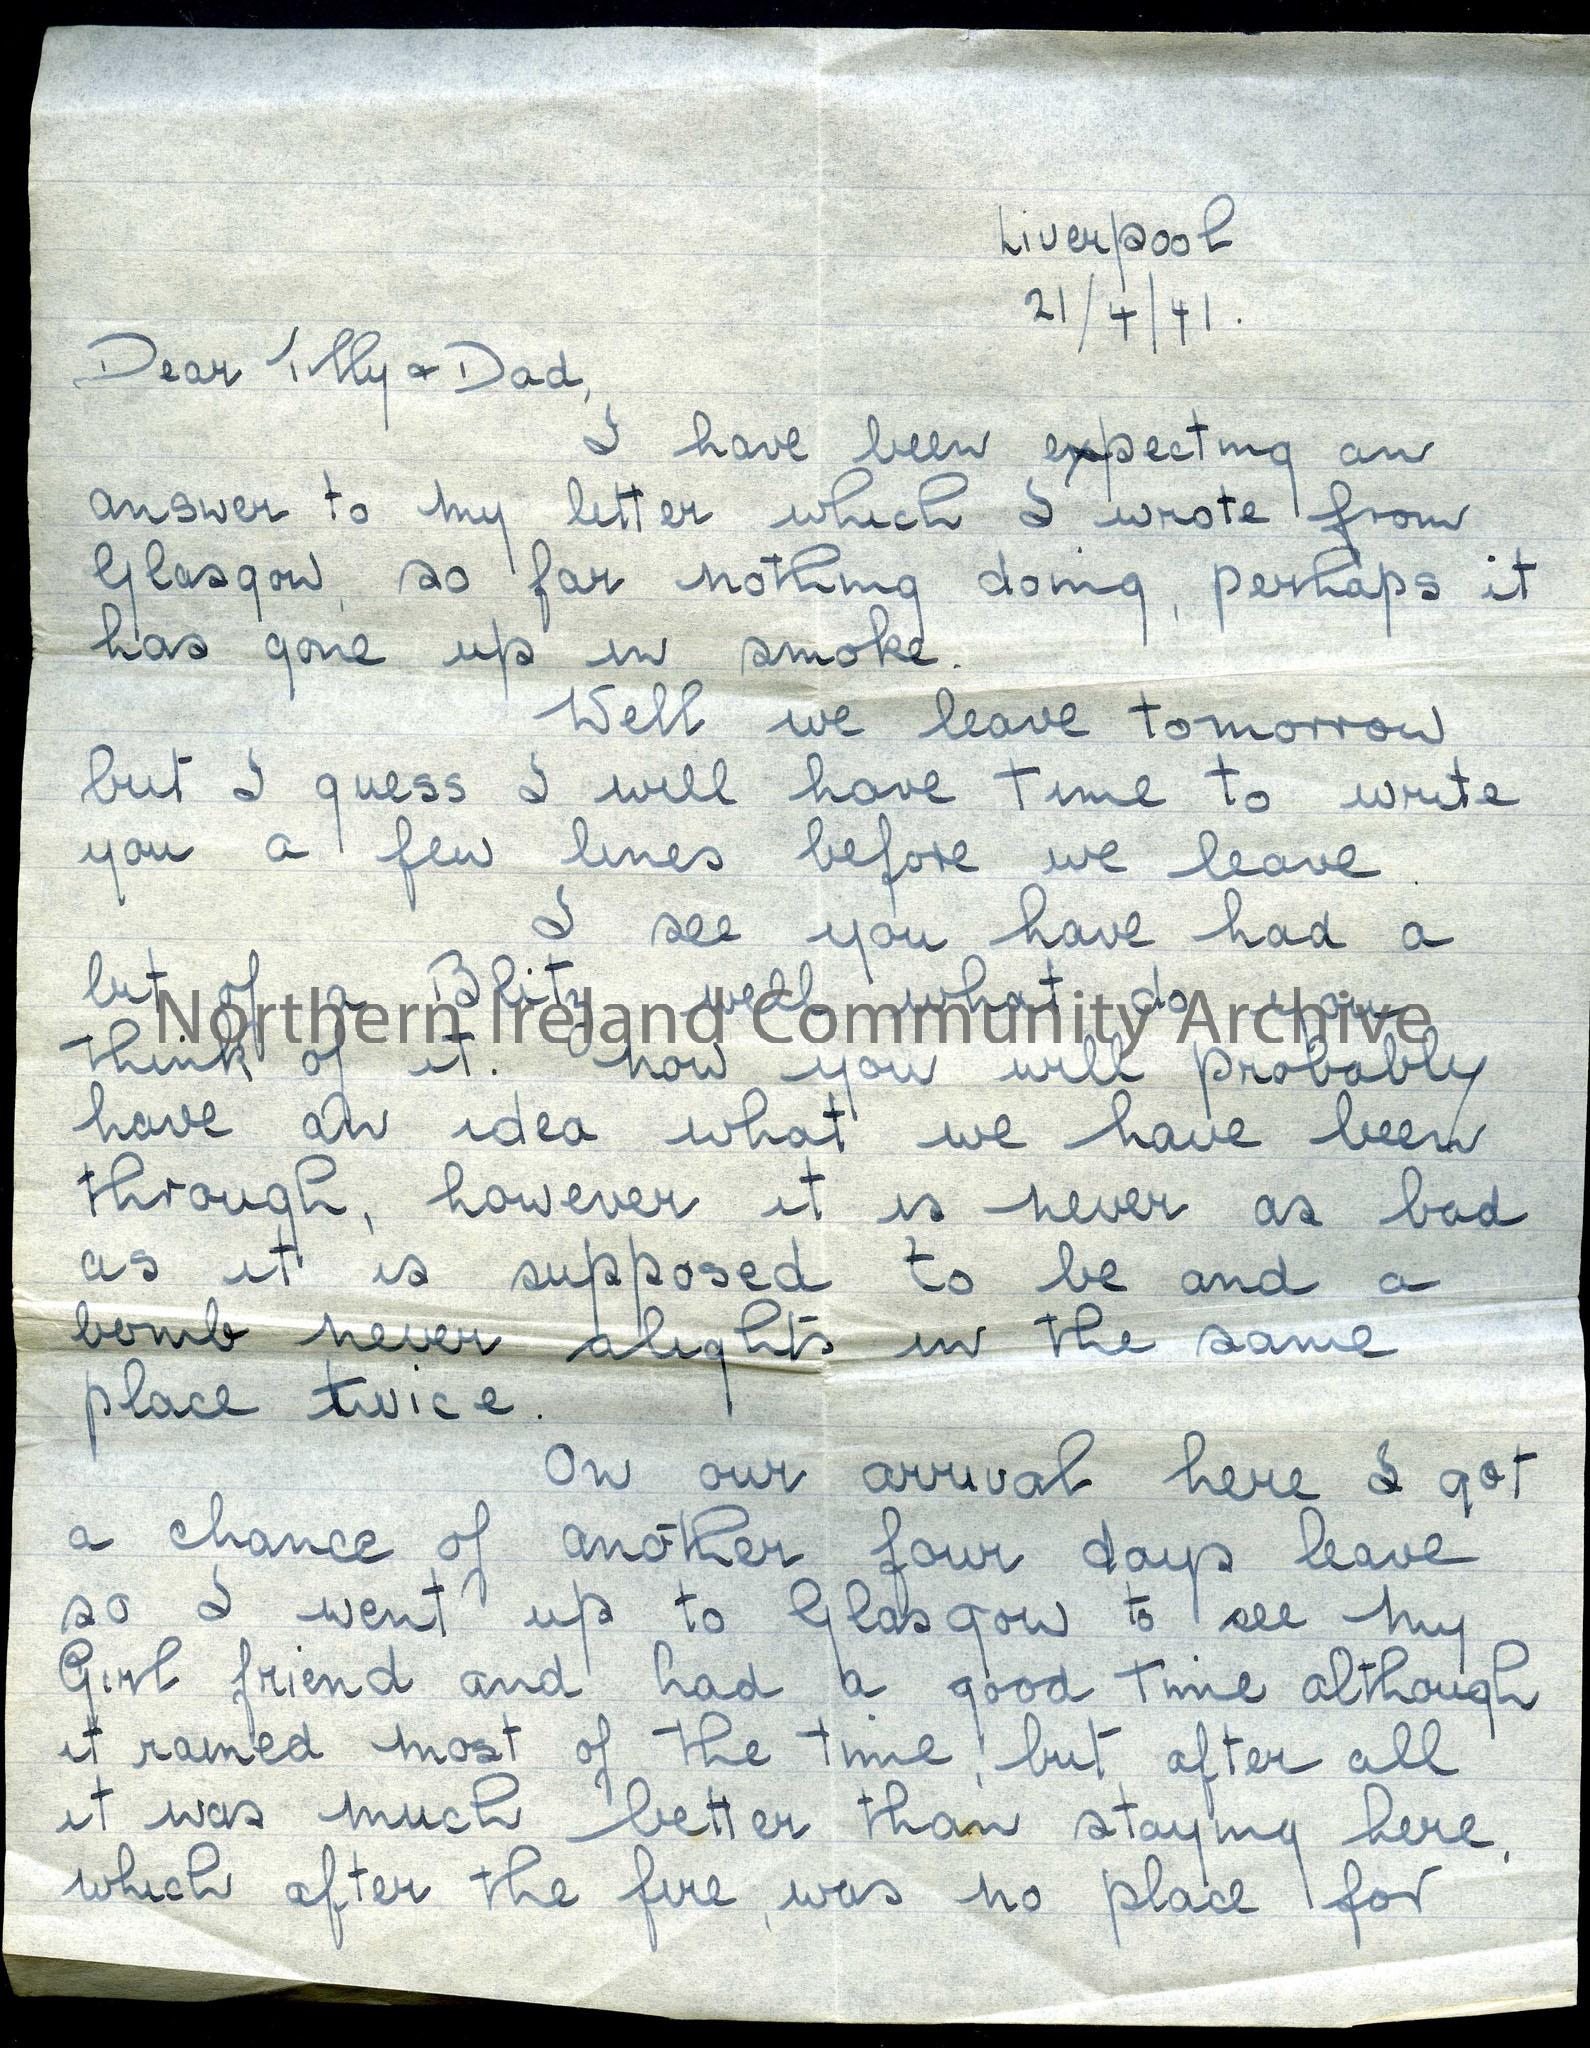 Liverpool
21/4/41.
Dear Tilly & Dad,
I have been expecting an
answer to my letter which I wrote from
Glasgow, so far nothing doing, perhaps it
has gone up in smoke.
Well we leave tomorrow
but I guess I will have time to write
you a few lines before we leave.
I see you have had a
bit of a Blitz well what do you
Northern Ireland Community Archive
think of it. now you will probably
have an idea what we have been
through, however it is never as bad
as it is supposed to be and a
bomb never alights in the same
place twice.
On our arrival here I got
a chance of another four days leave
so I went up to Glasgow to see my
Girl friend and had a good time although
it rained most of the time, but after all
it was much better than staying here,
which after the fire, was no place for